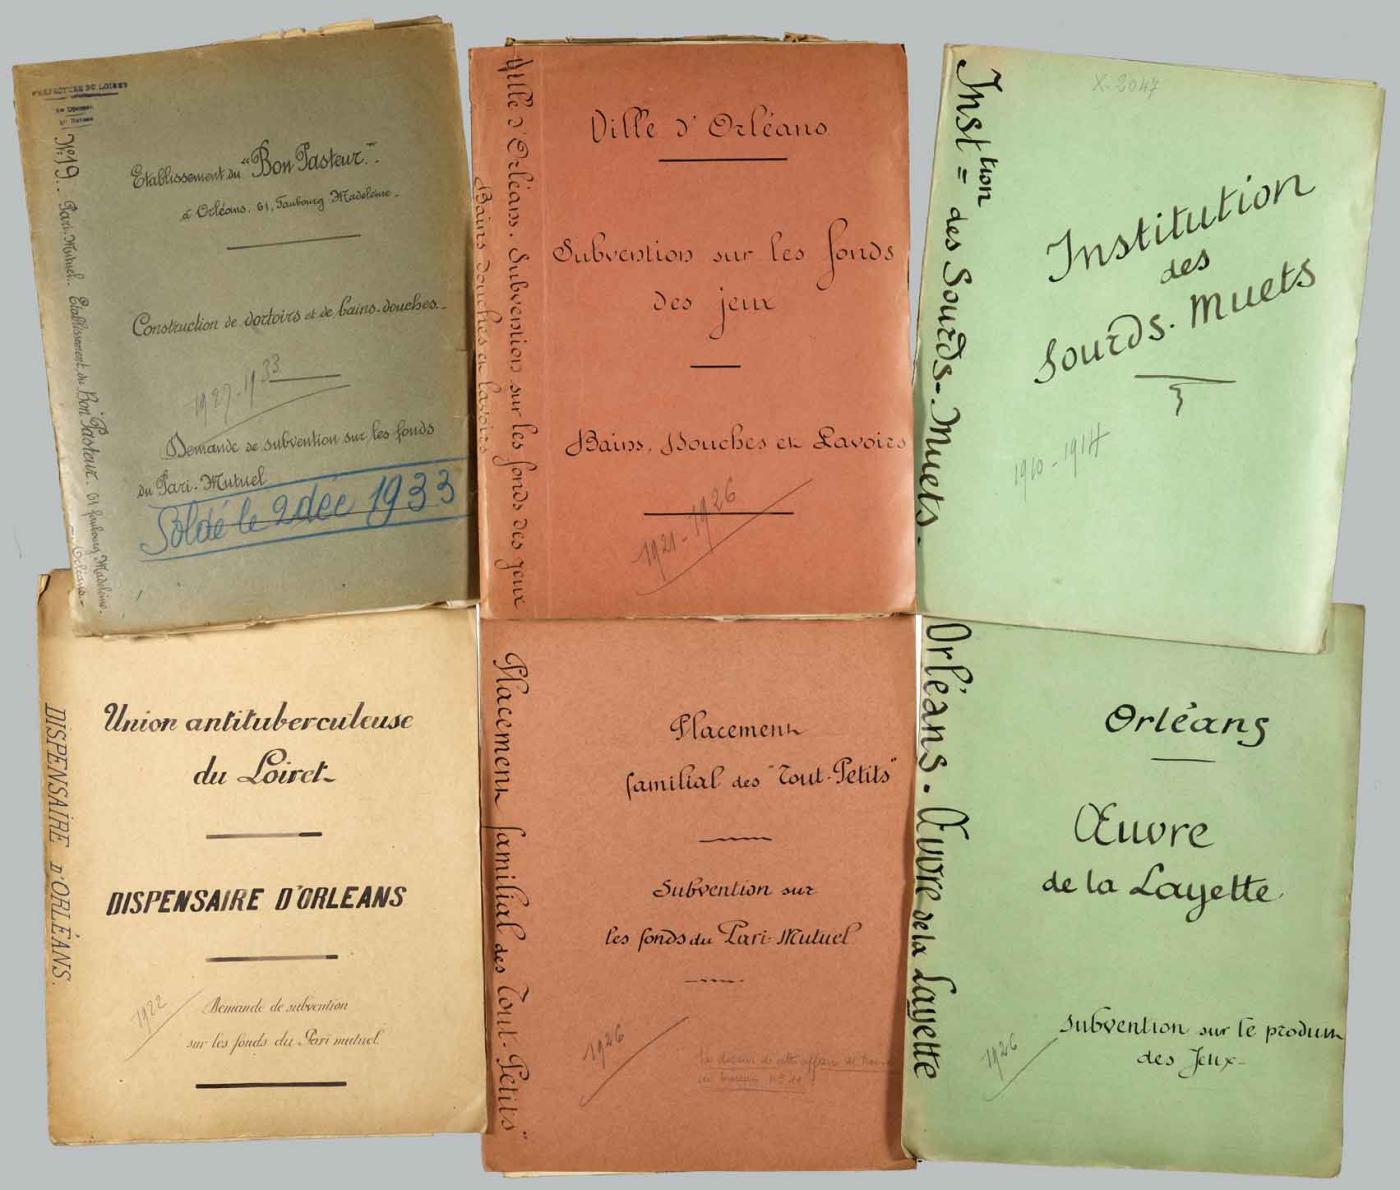 PRÉFECTURE DU LOIRET
Nº19. Pari-Mutuel. Etablissement du Bon Pasteur. 61 faubourg Madeleine.
Orléans.
Etablissement du "Bon Pasteur".
à Orléans. 61, Faubourg Madeleine.
Construction de dortoirs et de bains-douches.
1927-1933
Demande de subvention sur les fonds
du Pari-Mutuel
Soldé le 2 déc 1933
Ville d'Orléans. Subvention sur les fonds des jeux
Bains douches et lavoirs
Ville d'Orléans
Subvention sur les fonds
des jeux
Bains, Douches et Lavoirs
1921-1926
Inst^tion = des Sourds-Muets.
X-2047
Institution
des
Sourds-Muets
1910-1914
DISPENSAIRE D'ORLÉANS.
Union antituberculeuse
du Loiret
DISPENSAIRE D'ORLEANS
1922
Demande de subvention
sur les fonds du Pari mutuel
Placement familial des "Tout-Petits"
Placement
familial des "Tout-Petits"
Subvention sur
les fonds du Pari-Mutuel
1926
Le dossier de cette affaire se trouve
au bureau
Orléans. Œuvre de la Layette
Orléans
Œuvre
de la Layette
Subvention sur le produit
des Jeux
1926